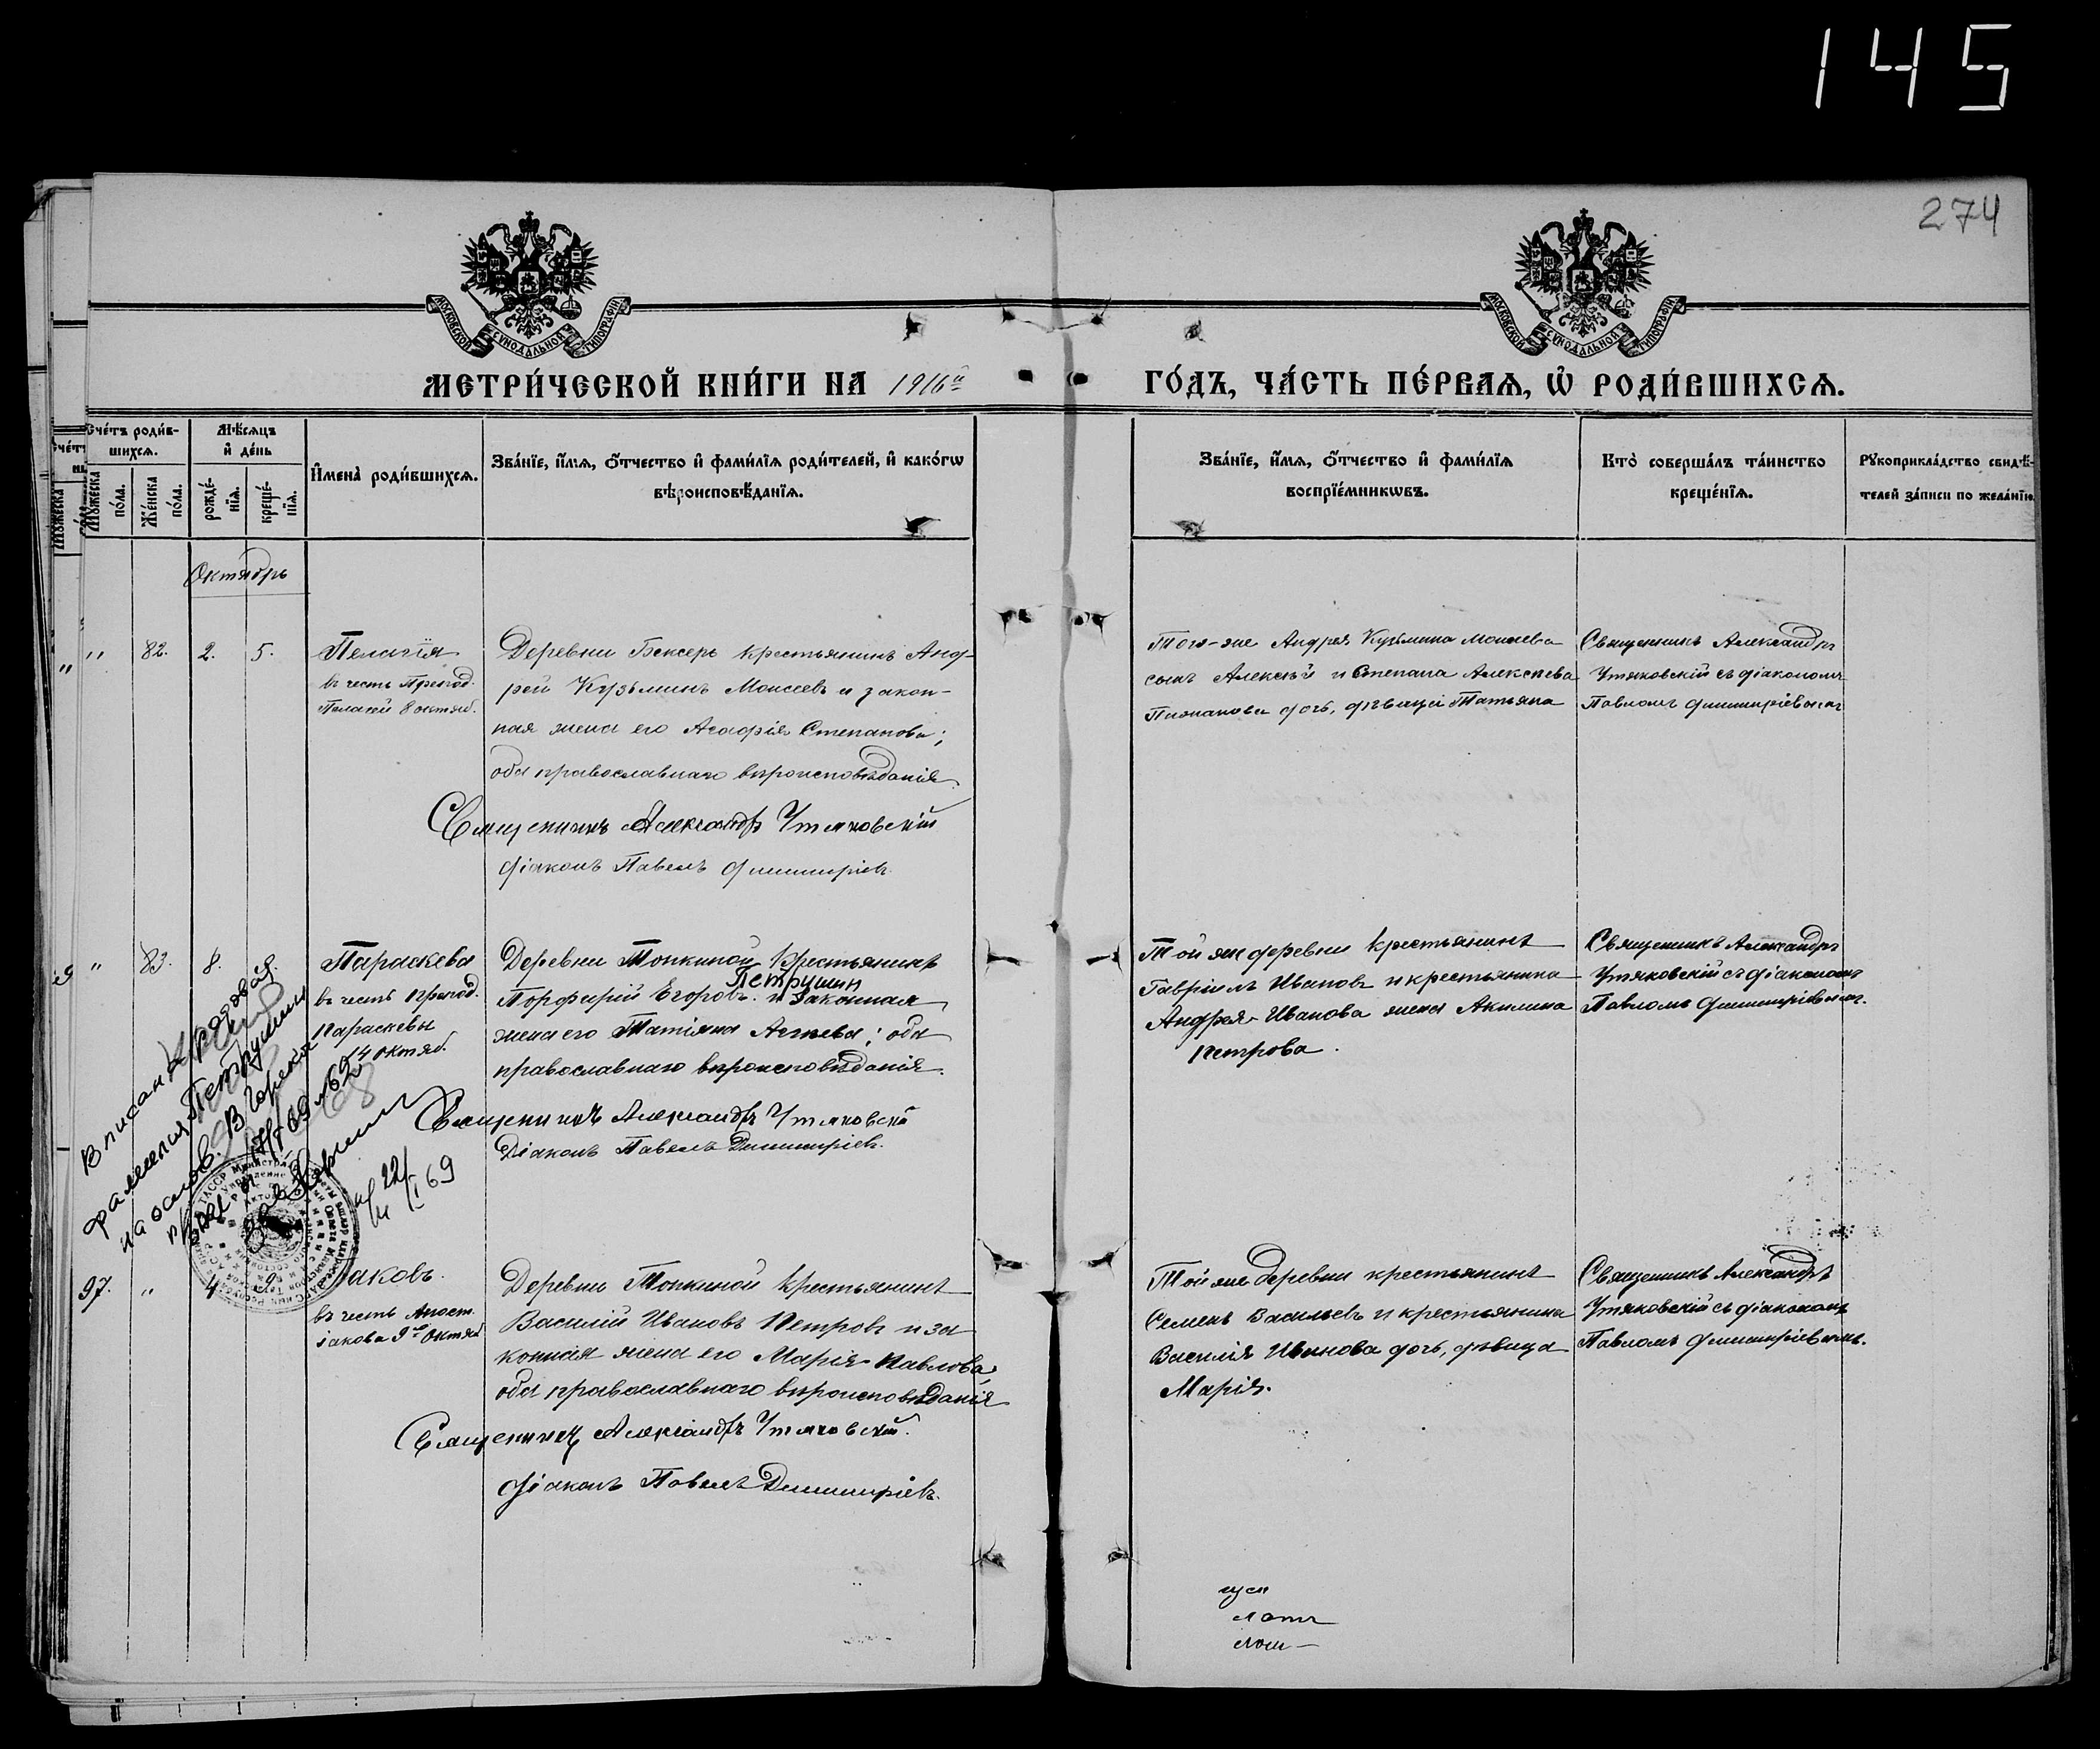 145
274
МОСКОВСКОЙ СѴНОДАЛЬНОЙ ТИПОГРАФІИ
МОСКОВСКОЙ СѴНОДАЛЬНОЙ ТИПОГРАФІИ
МЕТРИ́ЧЕСКОЙ КНИ́ГИ НА 1916й ГО́ДЪ, ЧА́СТЬ ПЕ́РВАѦ, Ѡ РОДИ́ВШИХСѦ.
Сче́тъ роди́в-
шихсѧ.
Мꙋжеска по́ла.
Же́нска по́ла.
Мѣ́сѧцъ
и҆ де́нь
рожде́-
нїѧ.
креще́-
нїѧ.
И҆мена̀ роди́вшихсѧ.
Зва́нїе, и҆́мѧ, ѻ҆́тчество и҆ фами́лїѧ роди́телей, и҆ како́гѡ
вѣроисповѣ́данїѧ.
Зва́нїе, и҆́мѧ, ѻ҆́тчество и҆ фами́лїѧ
воспрїе́мникѡвъ.
Кто̀ соверша́лъ та́инство
креще́нїѧ.
Рꙋкоприкла́дство свидѣ́-
телей за́писи по жела́нїю
Октябрь
" 82. 2. 5.
Пелагія
въ честь Препод.
Пелагіи 8 октяб.
Деревни Бексеръ крестьянинъ Анд-
рей Кузьминъ Моисеевъ и закон-
ная жена его Агафія Степанова;
оба православнаго вѣроисповѣданія.
Священникъ Александръ Утяковскій
Діаконъ Павелъ Димитріевъ
Того-же Андрея Кузьмина Моисеева
сынъ Алексѣй и Степана Алексѣева
дочь, дѣвица Татьяна
Священникъ Александръ
Утяковскій съ діакономъ
Павломъ Димитріевымъ
" 83. 8.
Параскева
въ честь препод.
Параскевы
14 октяб.
Деревни Топкиной крестьянинъ
Петрушин
Порфирій Егоровъ и законная
жена его Татіана ; оба
православнаго вѣроисповѣданія.
Священникъ Александръ Утяковскій
Діаконъ Павелъ Димитріевъ.
Той же деревни крестьянинъ
Гавріилъ Ивановъ и крестьянина
Андрея Иванова жена Акилина
Петрова.
Священникъ Александръ
Утяковскій съ діакономъ
Павломъ Димитріевымъ.
Вписан
фамилия Петрушин
на основ.
22/I 69
97. " 4 9
Іаковъ.
въ честь Апост.
Іакова 9го Октяб
Деревни Топкиной крестьянинъ
Василій Ивановъ Петровъ и за
конная жена его Марія Павлова
оба православнаго вѣроисповѣданія
Священникъ Александръ Утяковскій.
Діаконъ Павелъ Димитріевъ.
Той же деревни крестьянинъ
Семенъ Васильевъ и крестьянина
Василія Иванова дочь, дѣвица
Марія.
Священникъ Александръ
Утяковскій съ діакономъ
Павломъ Димитріевымъ.